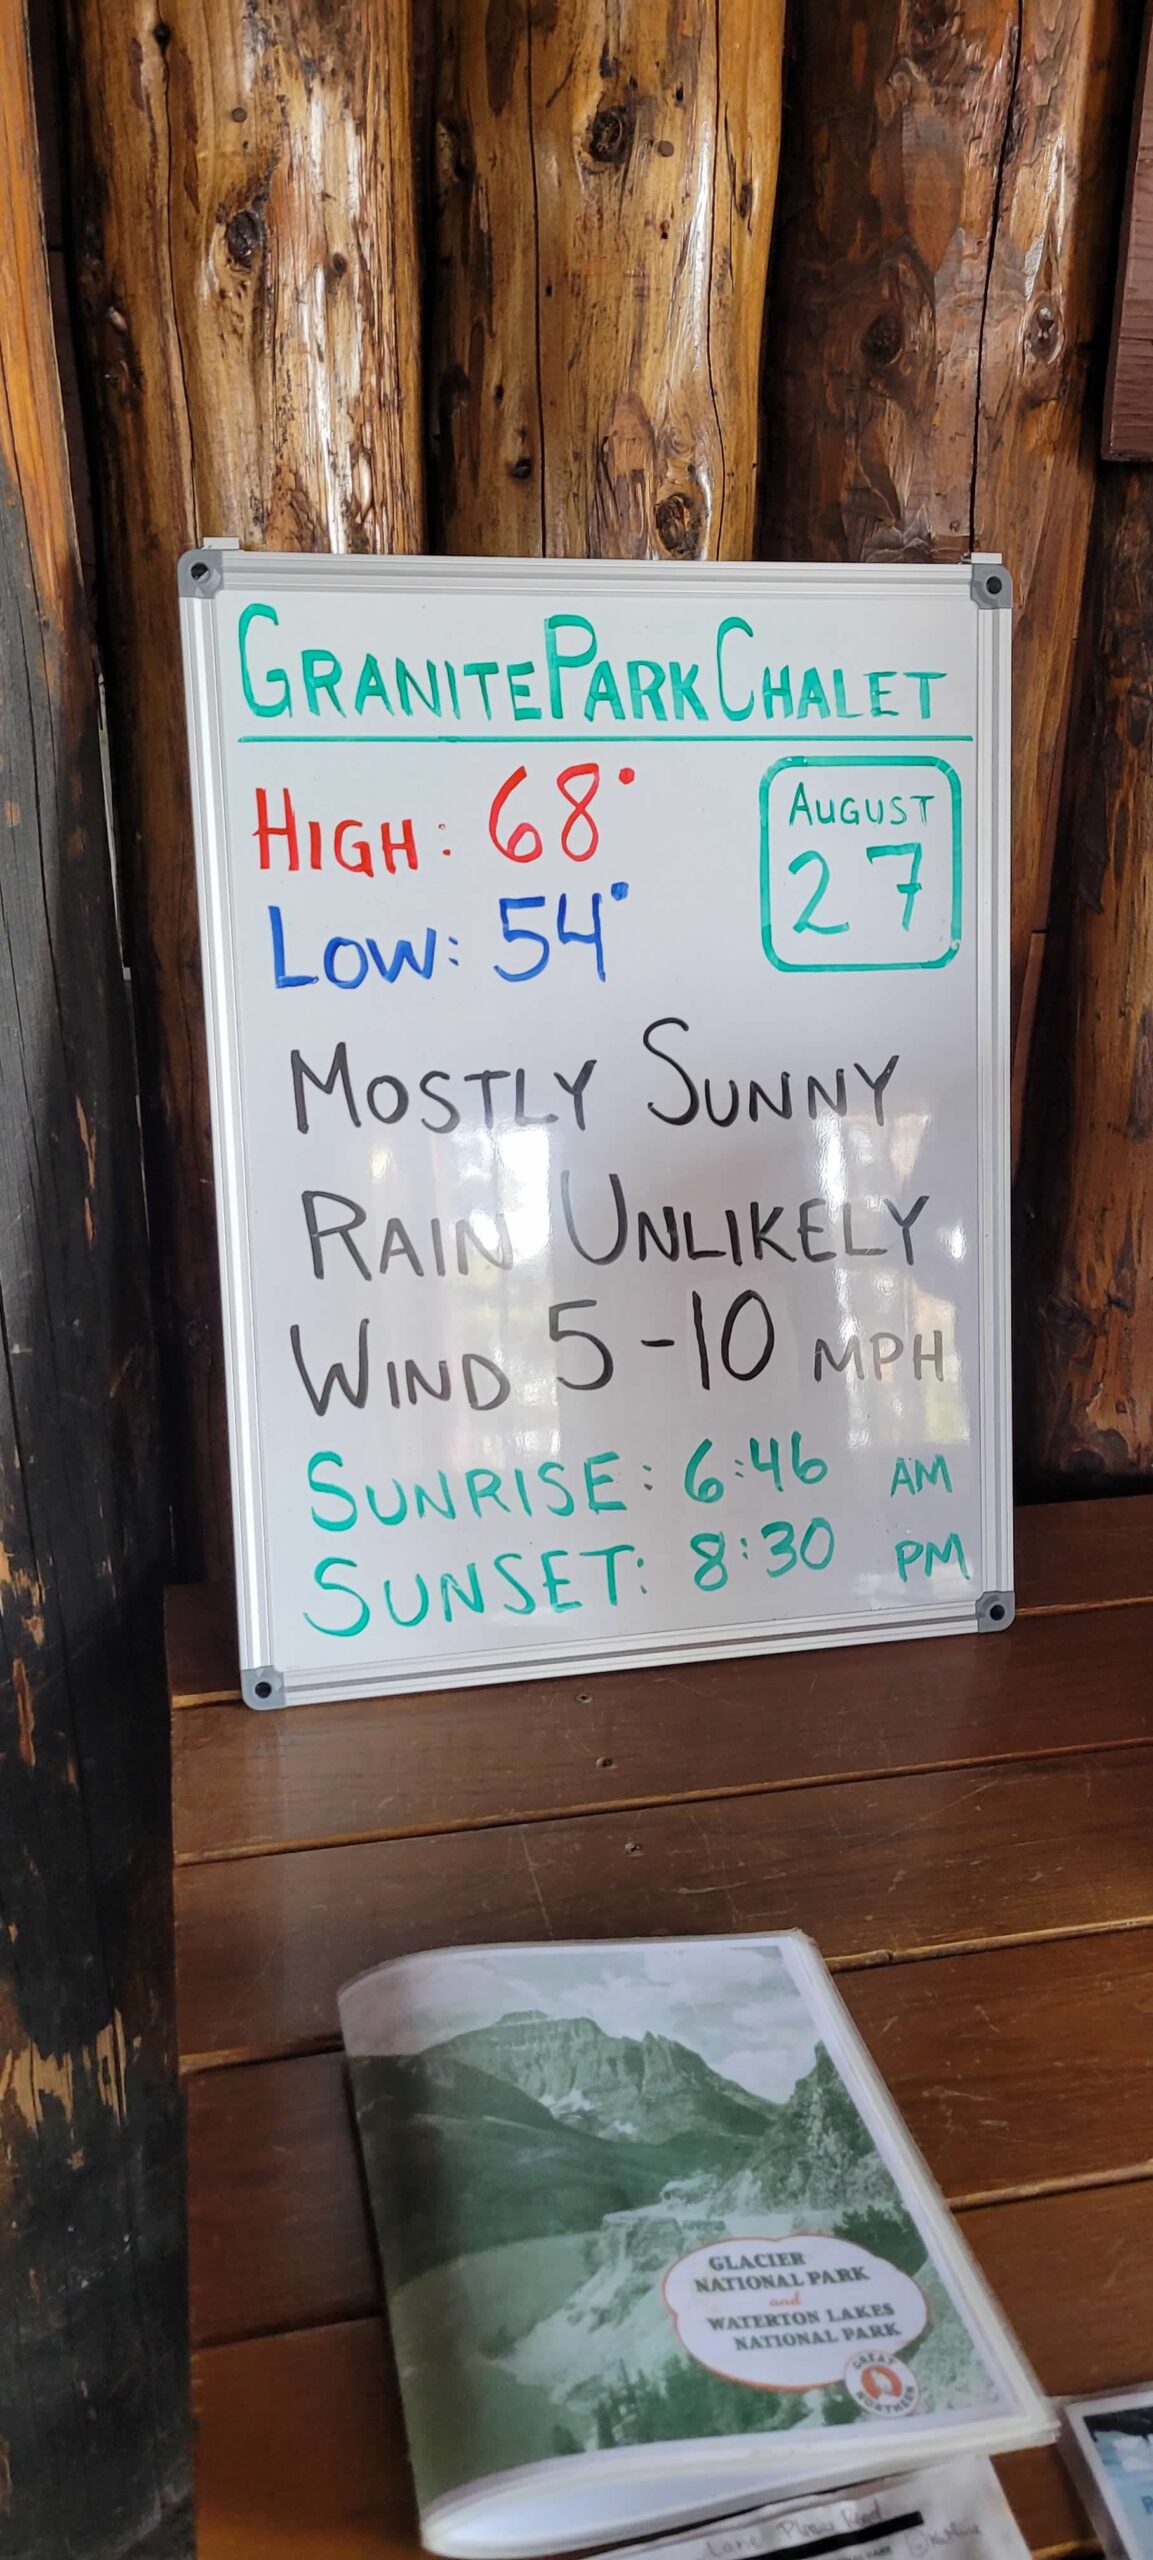 GRANITE PARK CHALET
HIGH: 68°
LOW: 54°
AUGUST
27
MOSTLY SUNNY
RAIN UNLIKELY
WIND 5-10 MPH
SUNRISE: 6:46 AM
SUNSET: 8:30 PM
GLACIER
NATIONAL PARK
and
WATERTON LAKES
NATIONAL PARK
GREAT
NORTHERN
Please Read